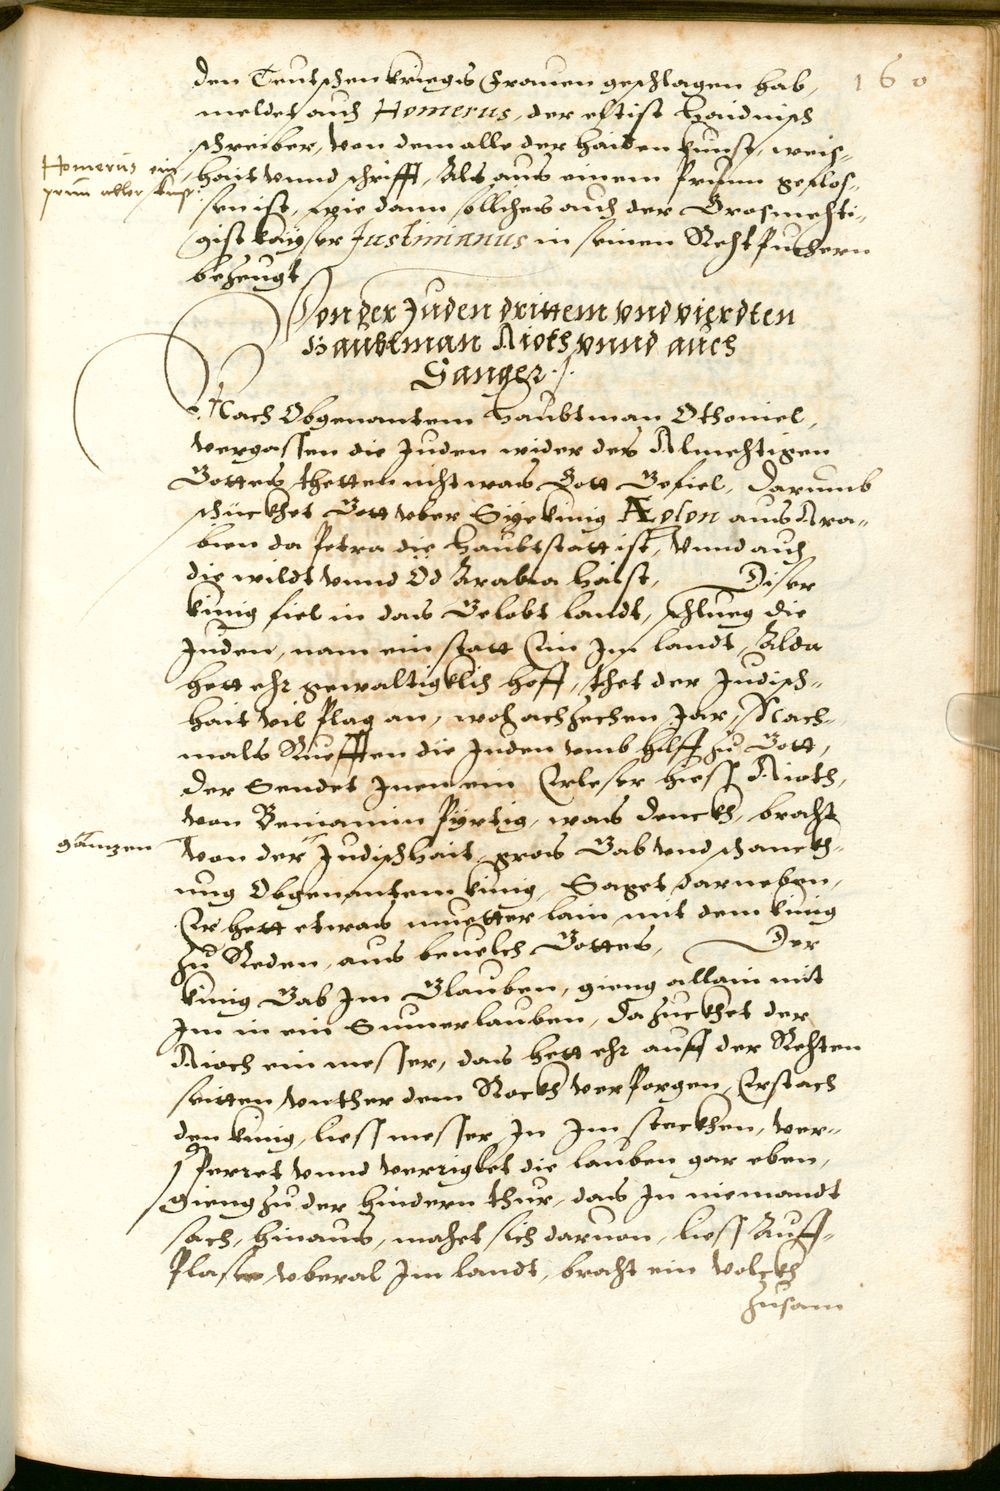 160
den Teutschen kriegs Frauen geschlagen hab,
meldet auch Homerus, der eltist haidnisch
schreiber, von dem alle der haiden kunst, weis-
Homerus ein
prun aller kunst.
hait vnnd schrifft, Als aus einem Prunn geflos-
sen ist, wie dann sollches auch der Grosmechti-
gist kayser Justinianus in seinen Recht Puchern
bezeugt
Von der Juden drittem vnd vierdten
Haubtman Aioth vnnd auch
Sanger ./.
Nach Obgenantem Haubtman Othoniel,
vergassen die Juden wider des Almechtigen
Gottes, thetten nicht was Gott Befiel, Darumb
schückhet Gott vber Sy kunig Aeglon aus Ara-
bien da Petra die haubtstatt ist, vnnd auch
die wildt vnnd Öd Arabia haist, Diser
kunig fiel in das Gelobt landt, schlueg die
Juden, nam ein statt Ein Im landt, Alda
hett ehr gewaltigklich hoff, thet der Judisch-
hait vil Plag an, wol achzechen Jar, Nach-
mals Ruefften die Juden vmb hilff zu Gott,
Der Sendet Jnen ein Erleser hiess Aioth,
von Beniamin Pürtig, was denckh, bracht
gantzen
von der Judischhait gros Gab vnd schanckh-
ung Obgenantem kunig, Saget darneben,
Er hett etwas mutterlain mit dem kunig
zu Reden, aus beuelch Gottes, Der
kunig Gab Im Glauben, gieng allain mit
Im in ein Sumerlauben, Da zuckhet der
Aioch ein messer, das hett ehr auff der Rechten
seitten vnther dem Rockh verporgen, Erstach
den kunig, liess messer In Im steckhen, ver-
sperret vnnd verriglet die lauben gar eben,
gieng zu der hindern thur, das In niemandt
sach, hinaus, machet sich daruon, liess Auff-
Plasen vberal Im landt, bracht ein volckh
zusam